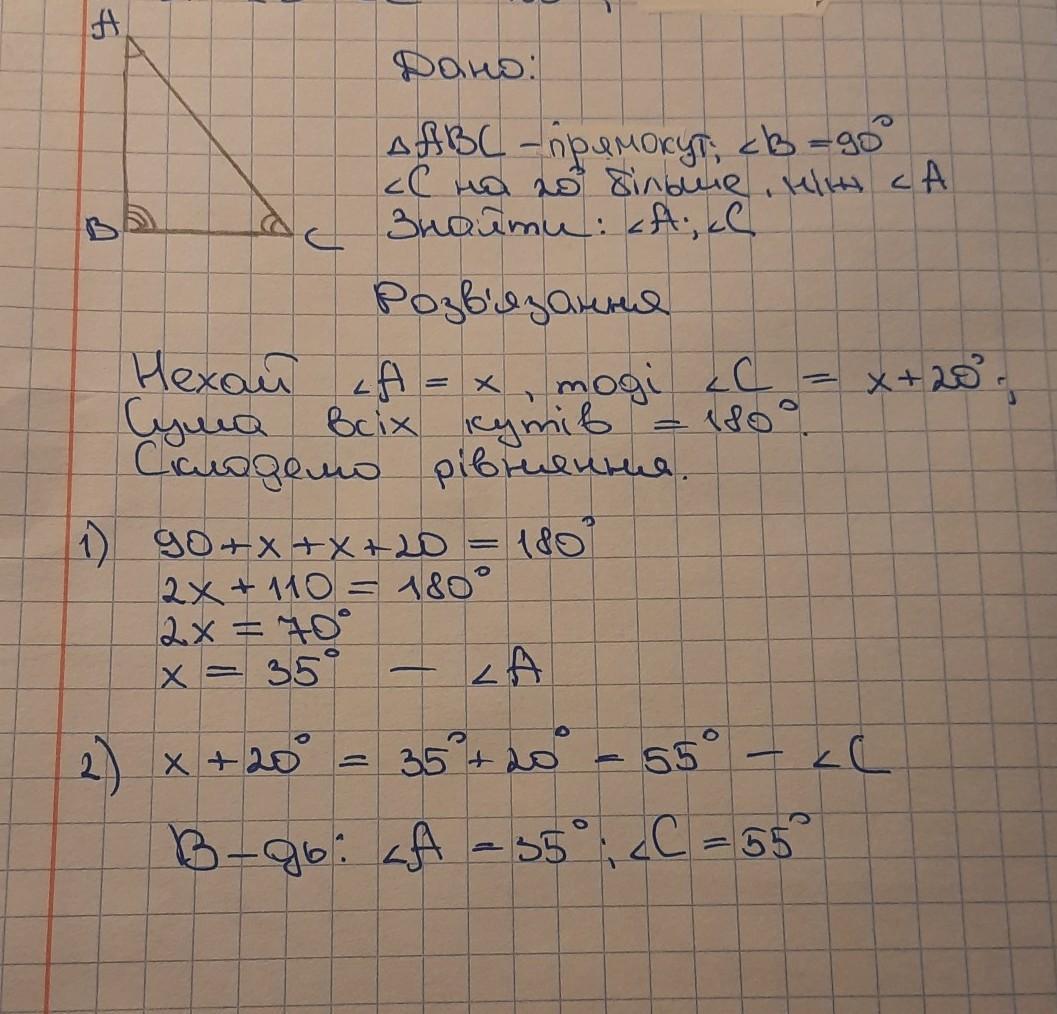 A
B
C
Дано:
△ABC – прямокут; ∠B = 90°
∠C на 20° більше, ніж ∠A
Знайти: ∠A; ∠C
Розв'язання
Нехай ∠A = x, тоді ∠C = x + 20°;
Сума всіх кутів = 180°.
Складемо рівняння.
1) 90 + x + x + 20 = 180°
2x + 110 = 180°
2x = 70°
x = 35° — ∠A
2) x + 20° = 35° + 20° = 55° — ∠C
В – дь: ∠A = 35°; ∠C = 55°